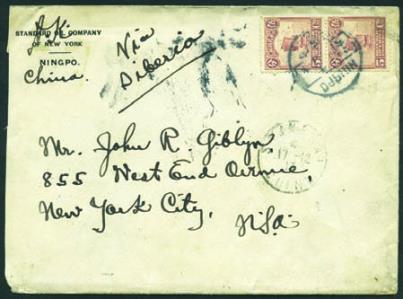 STANDARD OIL COMPANY
OF NEW YORK
NINGPO.
China.
Via
Siberia
Mr. John R. Giblyn,
855 West End Avenue,
New York City,
U.S.a.
NINGPO